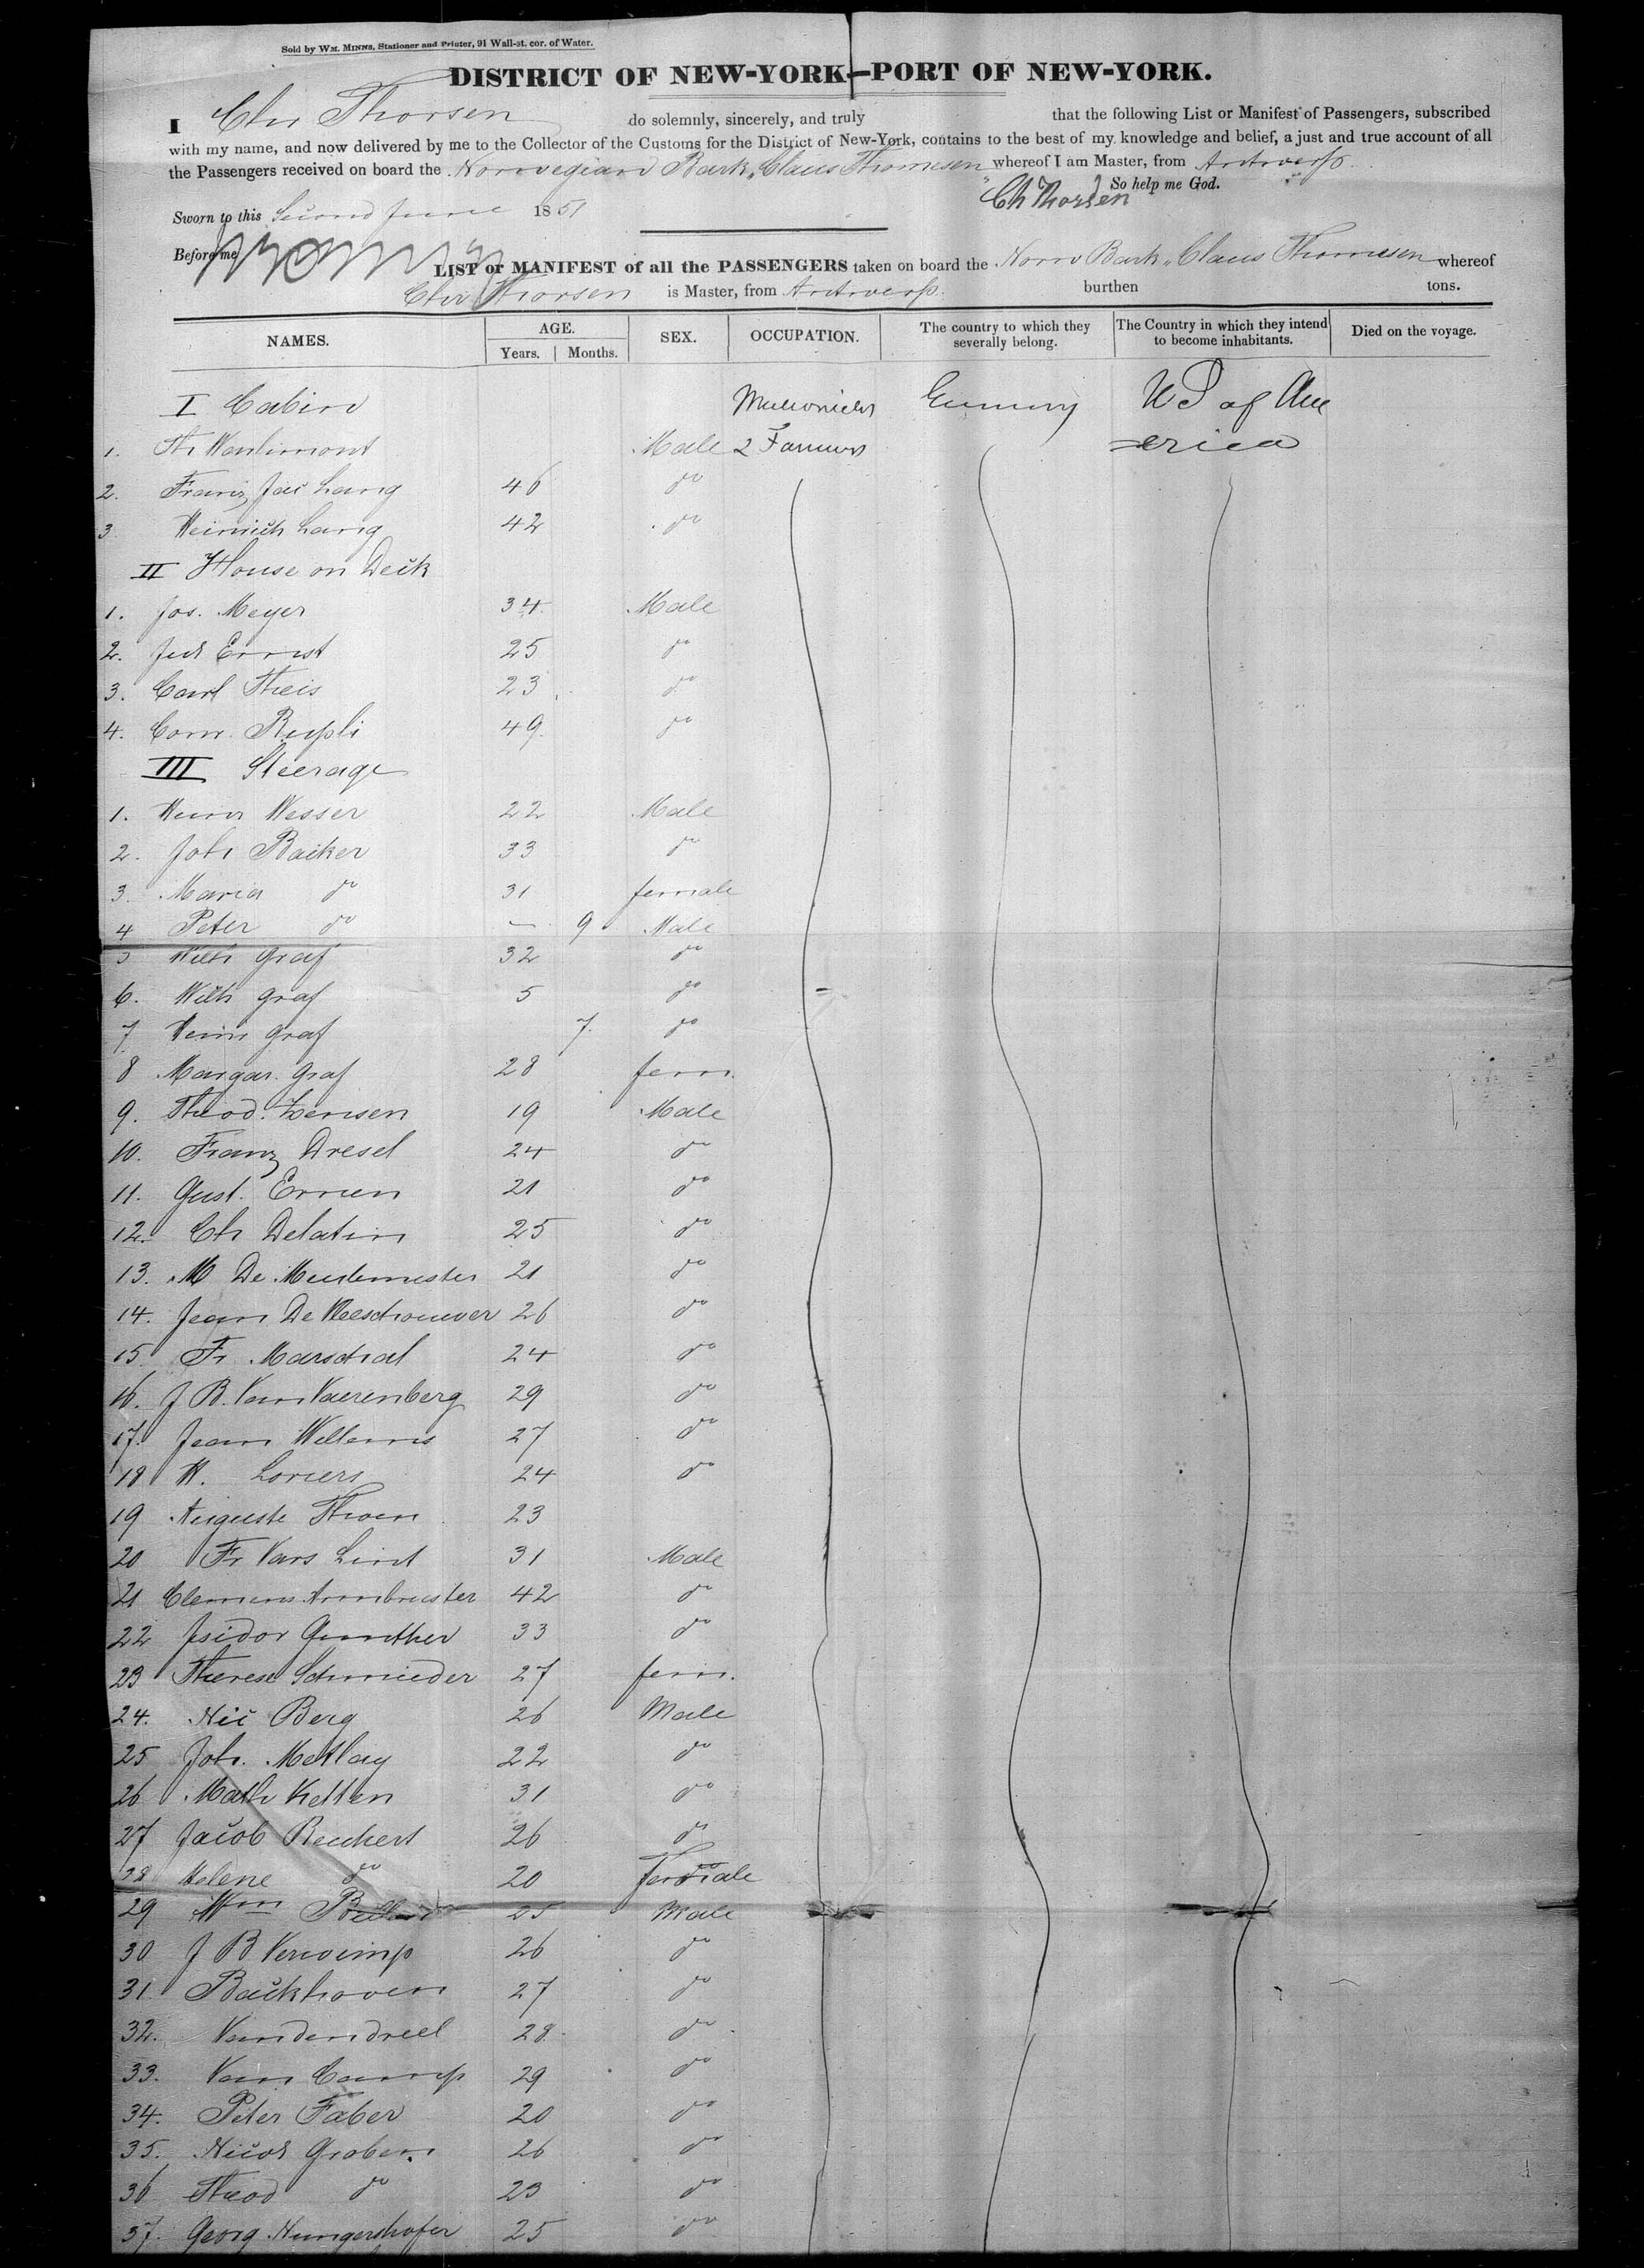 Sold by WM. MINNS, Stationer and Printer, 91 Wall-st. cor. of Water.
DISTRICT OF NEW-YORK—PORT OF NEW-YORK.
I Chr Thorsen do solemnly, sincerely, and truly that the following List or Manifest of Passengers, subscribed
with my name, and now delivered by me to the Collector of the Customs for the District of New-York, contains to the best of my knowledge and belief, a just and true account of all
the Passengers received on board the Norwegian Bark "Claus Thomesen" whereof I am Master, from Antwerp.
So help me God.
Sworn to this Second June 1851 Ch Thorsen
Before me
LIST or MANIFEST of all the PASSENGERS taken on board the Norw Bark "Claus Thomesen whereof
Chr Thorsen is Master, from Antwerp. burthen tons.
NAMES. AGE. Years. Months. SEX. OCCUPATION. The country to which they severally belong. The Country in which they intend to become inhabitants. Died on the voyage.
I Cabin Germany US of Ame
1. Male 2 Farmers =erica
2. Franz Jac Lang 46 do
3 Heinrich Lang 42 do
II House on Deck
1. Jos. Meyer 34 Male
2. Ernst 25 do
3. Carl Theis 23 do
4. Conr. Rupli 49 do
III Steerage
1. Heinr Wesser 22 Male
2. Joh Backer 33 do
3. Maria do 31 female
4 Peter do — 9 Male
5 Wilh Graf 32 do
6. Wilh Graf 5 do
7 Heinr Graf 7. do
8 Margar. Graf 28 fem.
9. Theod. Jensen 19 Male
10. Franz Dresel 24 do
11. Gust. Ernen 21 do
12. Ch Delatin 25 do
13. M De Meulemester 21 do
14. Jean De Vleeschouwer 26 do
15 Fr Marschal 24 do
16. J B. Van Vaerenberg 29 do
17. Jean Willems 27 do
18 H. Loriers 24 do
19 Auguste Thoen 23
20 Fr Van Lint 31 Male
21 Clemens Armbruster 42 do
22 Isidor Gunther 33 do
23 Therese Schmieder 27 fem.
24. Nic Berg 26 Male
25 Joh. Metlay 22 do
26 Math Ketten 31 do
27 Jacob Reichert 26 do
28 Helene do 20 female
29 Wm 25 Male
30 J B Verwimp 26 do
31 Backhoven 27 do
32. Vandendreel 28. do
33. Van Camp 29 do
34. Peter Faber 20 do
35. Nicol Graben 26 do
36 Theod do 23 do
37. Georg Hungershofer 25 do